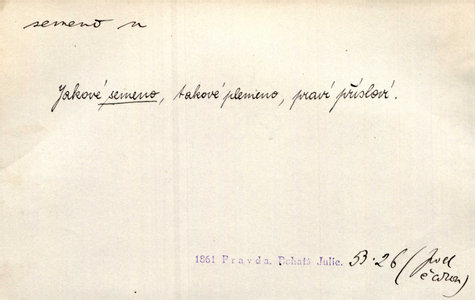 semeno n
Jakové semeno, takové plemeno, praví přísloví.
1861 Pravda. Bohatá Julie. 53.26 (pod
čarou)